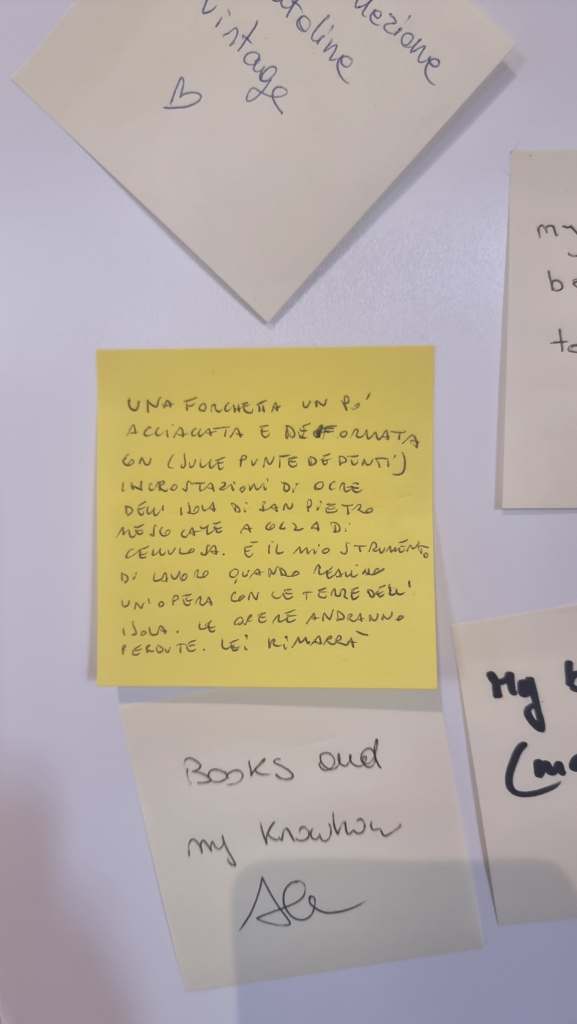 vintage
my
be
to
UNA FORCHETTA UN PO'
ACCIACCATA E DEFORMATA
CON (SULLE PUNTE DE DENTI)
INCROSTAZIONI DI OCRE
DELL'ISOLA DI SAN PIETRO
MESCOLATE A COLLA DI
CELLULOSA. È IL MIO STRUMENTO
DI LAVORO QUANDO REALIZZO
UN'OPERA CON LE TERRE DELL'
ISOLA. LE OPERE ANDRANNO
PERDUTE. LEI RIMARRÀ
My b
(ma
BOOKS and
my KNOWhow
Ale